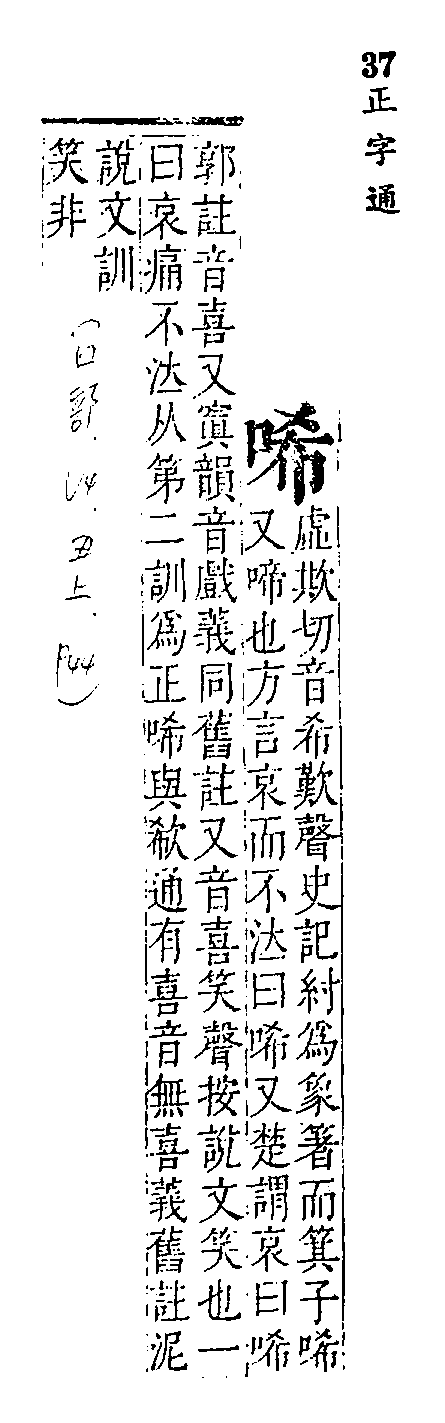 37正字通
唏
虛欺切音希歎聲史記紂爲象箸而箕子唏
又啼也方言哀而不泣曰唏又楚謂哀曰唏
郭註音喜又寘韻音戲義同舊註又音喜笑聲按說文笑也一
曰哀痛不泣从第二訓爲正唏與欷通有喜音無喜義舊註泥
說文訓
笑非
(口部. V4. 丑上. P44)